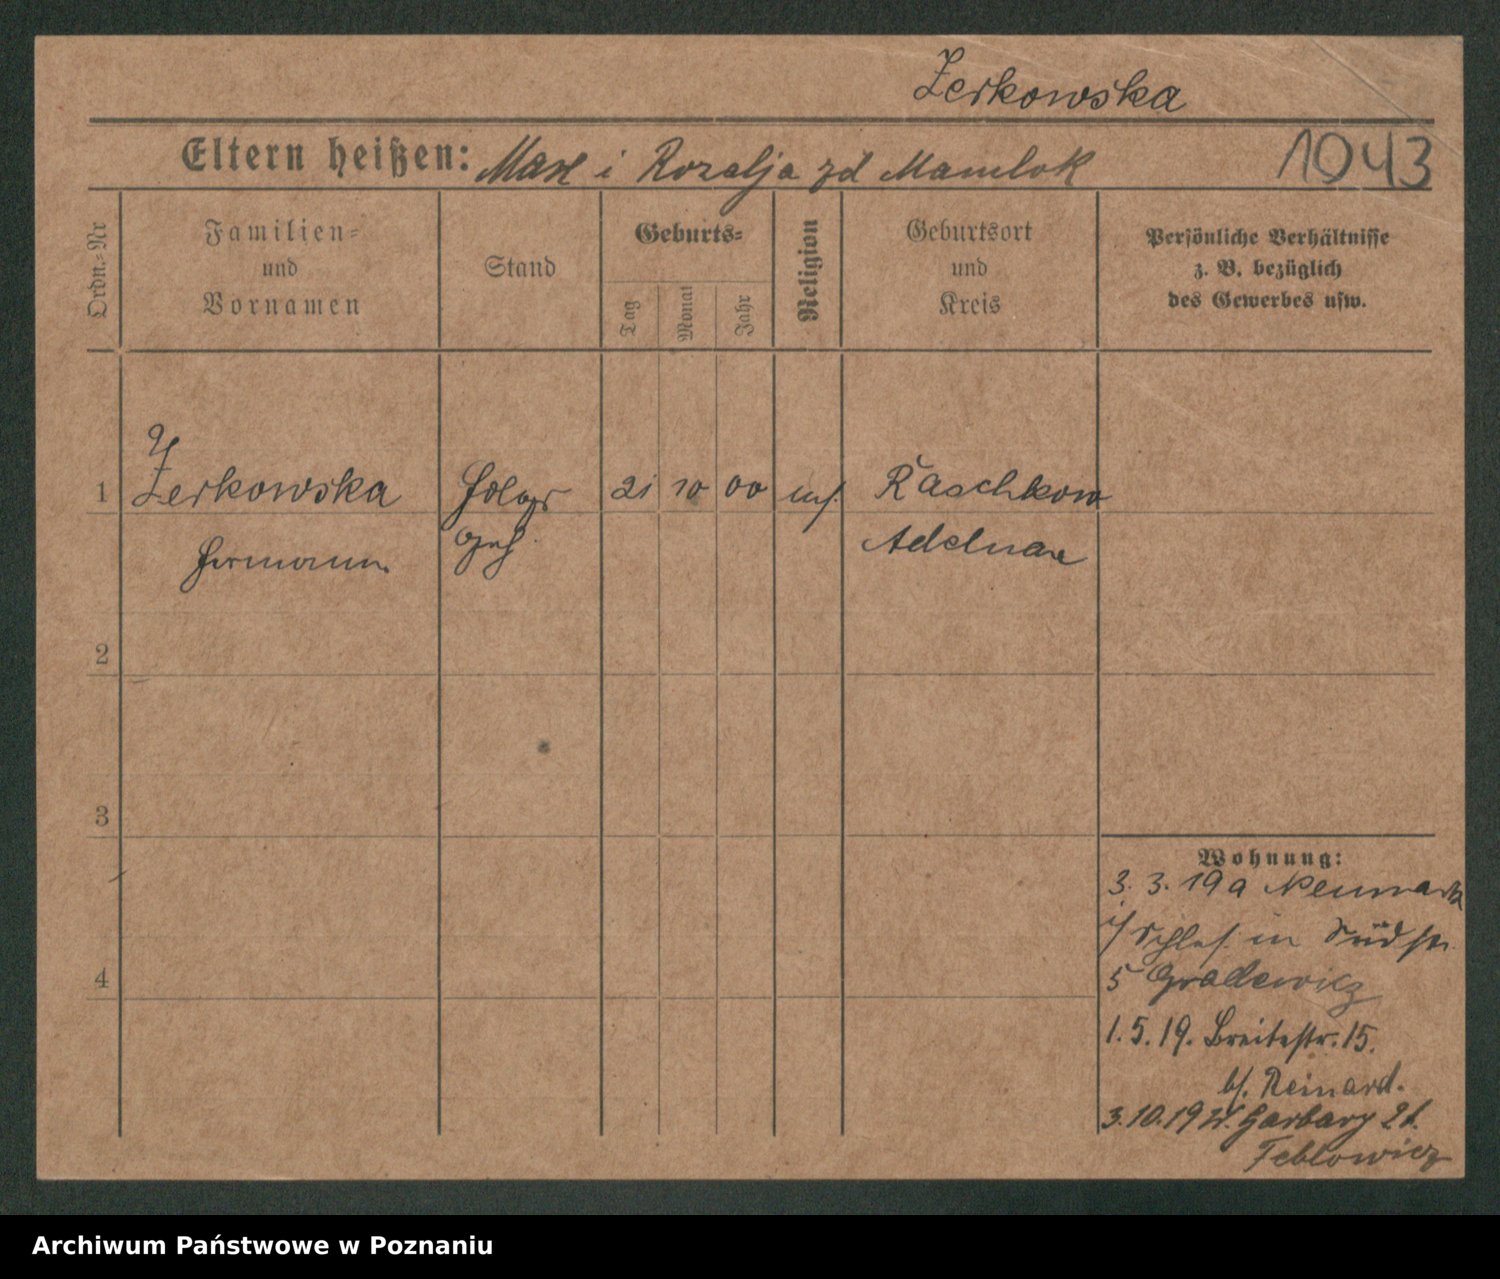 Zerkowska
Eltern heißen: Max i Rozalja zd Mamlok
1043
Ordn.-Nr
Familien-
und
Vornamen
Stand
Geburts-
Tag
Monat
Jahr
Religion
Geburtsort
und
Kreis
Persönliche Verhältnisse
z. B. bezüglich
des Gewerbes usw.
1
Zerkowska
Hermann
21 10 00
Raschkow
Adelnau
2
3
4
Wohnung:
3. 3. 19 a Neumarkt
i/ Schles. in Südstr.
5
1. 5. 19. Breitestr. 15.
b/. Reinard.
3. 10. 19 W. Garbary
Archiwum Państwowe w Poznaniu